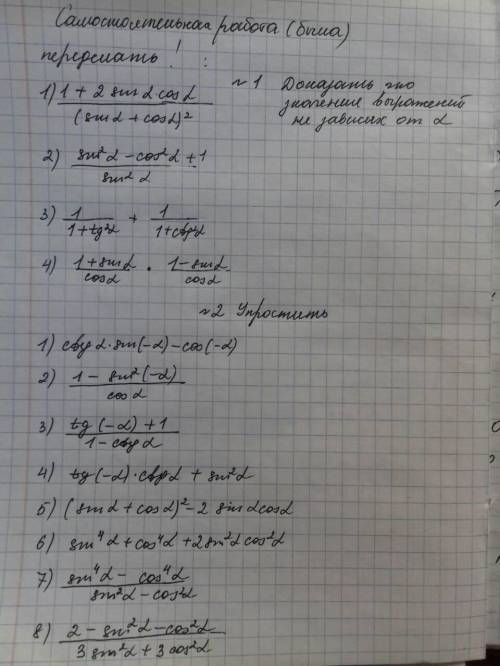 Самостоятельная работа (была)
переделать! :
№1 Доказать что
значение выражений
не зависит от α
1) (1 + 2 sin α · cos α) / (sin α + cos α)²
2) (sin²α – cos²α + 1) / sin²α
3) 1 / (1 + tg²α) + 1 / (1 + ctg²α)
4) (1 + sin α) / cos α · (1 – sin α) / cos α
№2 Упростить
1) ctg α · sin(–α) – cos(–α)
2) (1 – sin²(–α)) / cos α
3) (tg(–α) + 1) / (1 – ctg α)
4) tg(–α) · ctg α + sin²α
5) (sin α + cos α)² – 2 sin α cos α
6) sin⁴α + cos⁴α + 2 sin²α cos²α
7) (sin⁴α – cos⁴α) / (sin²α – cos²α)
8) (2 – sin²α – cos²α) / (3 sin²α + 3 cos²α)